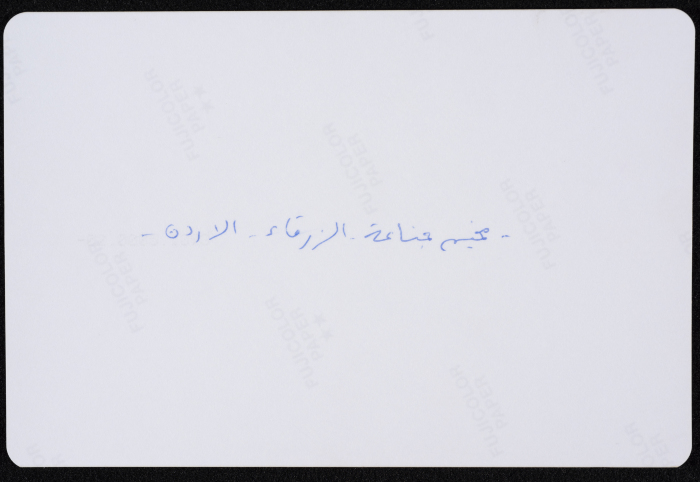 FUJICOLOR
PAPER
FUJICOLOR
PAPER
**
FUJICOLOR
PAPER
FUJICOLOR
PAPER
- مخيم جناعة - الزرقاء - الاردن -
FUJICOLOR
PAPER
FUJICOLOR
PAPER
**
FUJICOLOR
PAPER